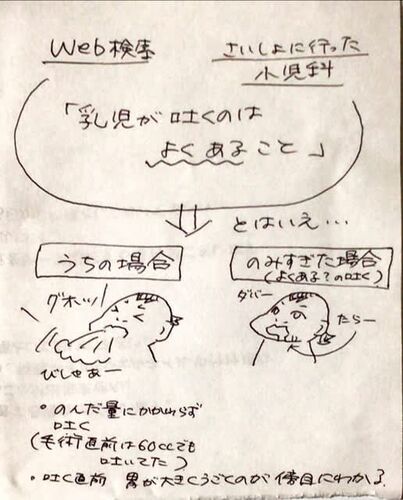 Web検索
さいしょに行った
小児科
「乳児が吐くのは
よくあること」
とはいえ…
うちの場合
のみすぎた場合
(よくある?の吐く)
グオッッ
びしゃあー
ダバー
たらー
・のんだ量にかかわらず
吐く
(手術直前は60ccでも
吐いてた)
・吐く直前 胃が大きくうごくのが傍目にわかる